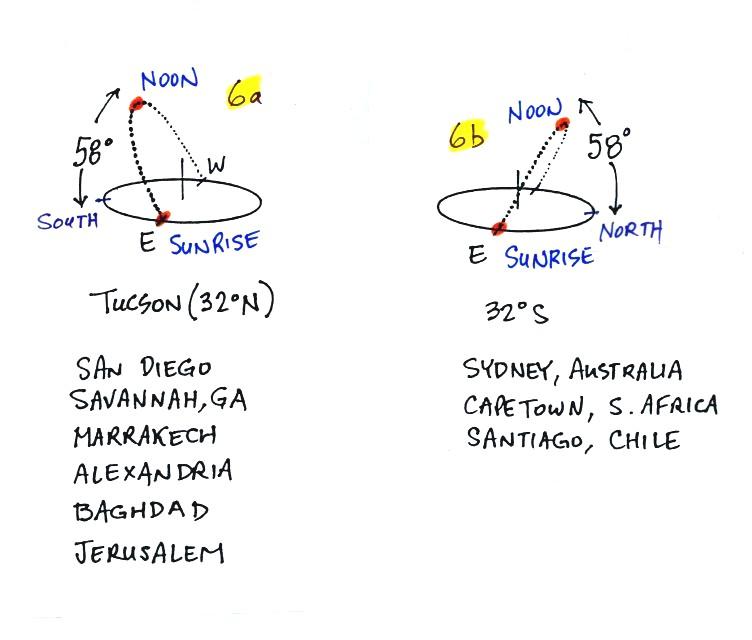 NOON
6a
58°
W
SOUTH
E SUNRISE
TUCSON (32°N)
SAN DIEGO
SAVANNAH, GA
MARRAKECH
ALEXANDRIA
BAGHDAD
JERUSALEM
NOON
6b
58°
NORTH
E SUNRISE
32°S
SYDNEY, AUSTRALIA
CAPETOWN, S. AFRICA
SANTIAGO, CHILE